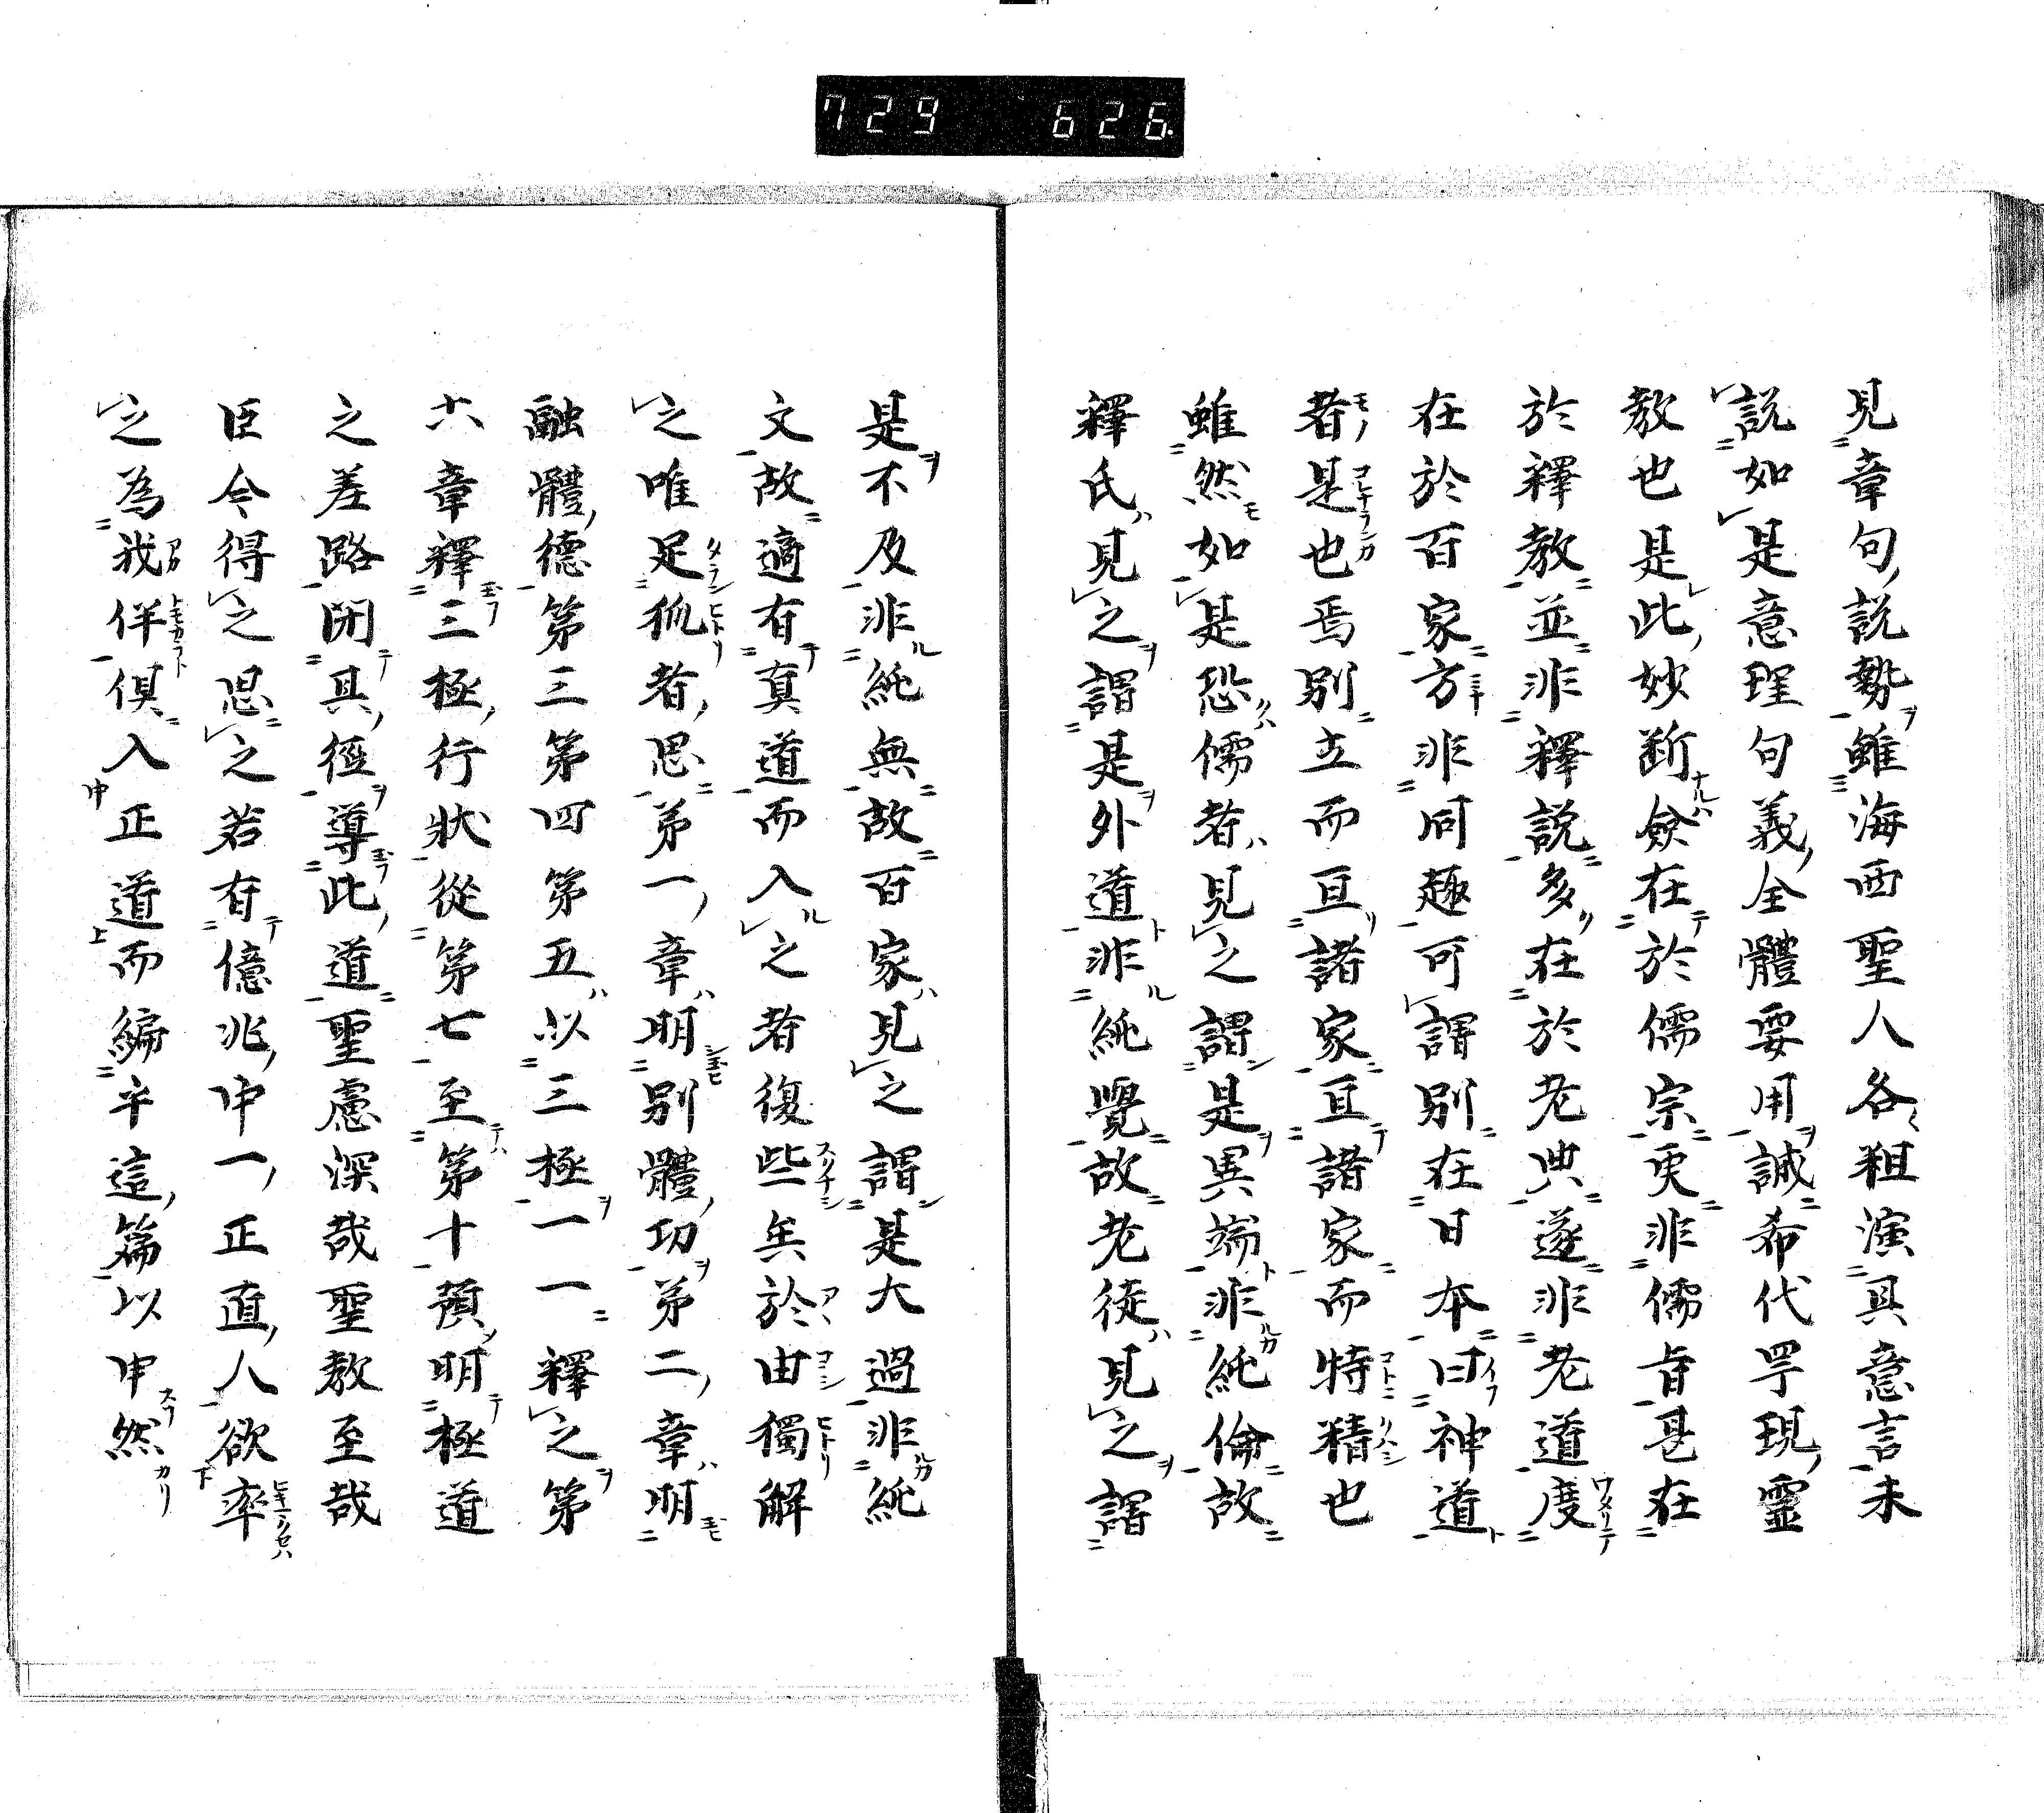 729 626
見章句説勢雖海西聖人各々粗演其意言未
説如是意理句義全體要用誠希代罕現靈
教也是此妙断僉在於儒宗更非儒旨甚在
於釋教並非釋説多在於老典遂非老道度
在於百家方非同趣可謂別在日本曰神道
者是也焉別立而亘諸家亘諸家而特精也
雖然如是恐儒者見之謂是異端非純倫故
釋氏見之謂是外道非純覺故老徒見之謂
是不及非純無故百家見之謂是大過非純
文故適有真道而入之者復些矣於由獨解
之唯足孤者思第一章明別體功第二章明
融體德第三第四第五以三極一一釋之第
六章釋三極行狀從第七至第十預明極道
之差路閉其徑導此道聖慮深哉聖教至哉
臣今得之思之若有億兆中一正直人欲率
之為我伴倶入正道而編乎這篇以申然